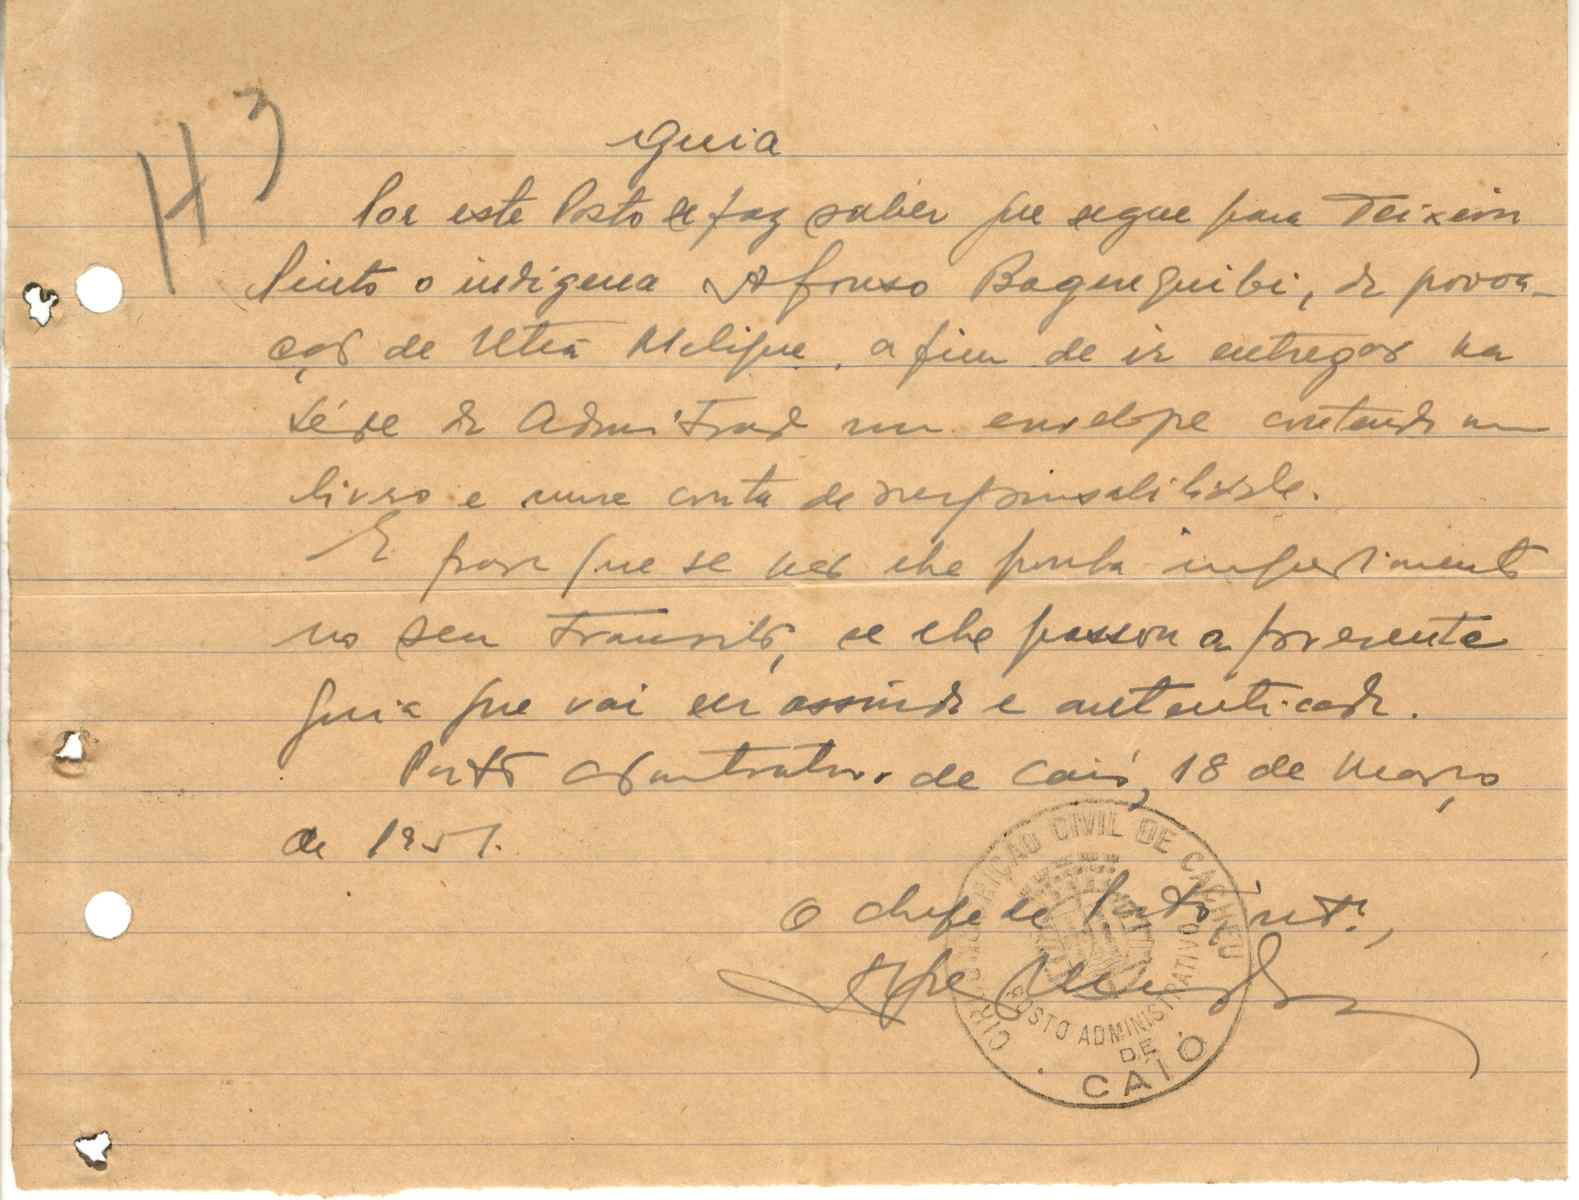 H 3
Guia
Por este Posto se faz saber que segue para Teixeira
Pinto o indigena Afonso Bagenguibi, da povoa-
ção de Utiá Melique, a fim de ir entregar na
séde da um envelope contendo um
livro e uma conta de responsabilidade.
E para que se não lhe ponha impedimento
no seu transito, se lhe passou a presente
guia que vai ser assinada e autenticada.
Posto de Caió, 18 de Março
de 1951.
O chefe de Posto intº,
CIRCUNSCRIÇÃO CIVIL DE CACHEU
POSTO ADMINISTRATIVO
DE
CAIÓ